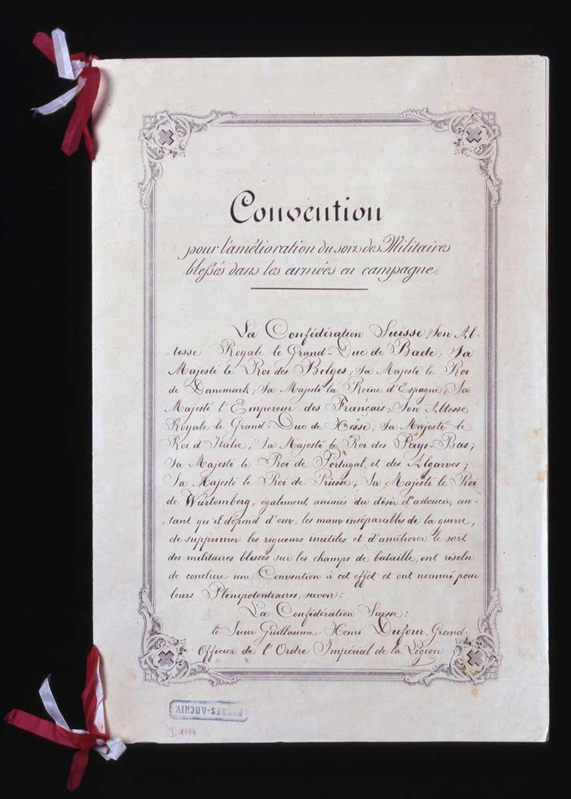 Convention
pour l'amélioration du sort des Militaires
blessés dans les armées en campagne.
La Confédération Suisse; Son Al-
tesse Royale le Grand-Duc de Bade; Sa
Majesté le Roi des Belges; Sa Majesté le Roi
de Danemark; Sa Majesté la Reine d'Espagne; Sa
Majesté l'Empereur des Français; Son Altesse
Royale le Grand Duc de Hesse; Sa Majesté le
Roi d'Italie; Sa Majesté le Roi des Pays-Bas;
Sa Majesté le Roi de Portugal et des Algarves;
Sa Majesté le Roi de Prusse; Sa Majesté le Roi
de Wurtemberg, également animés du désir d'adoucir, au-
tant qu'il dépend d'eux, les maux inséparables de la guerre,
de supprimer les rigueurs inutiles et d'améliorer le sort
des militaires blessés sur les champs de bataille, ont résolu
de conclure une Convention à cet effet et ont nommé pour
leurs Plénipotentiaires, savoir:
La Confédération Suisse:
le Sieur Guillaume-Henri Dufour, Grand
Officier de l'Ordre Impérial de la Légion
BUNDES-ARCHIV